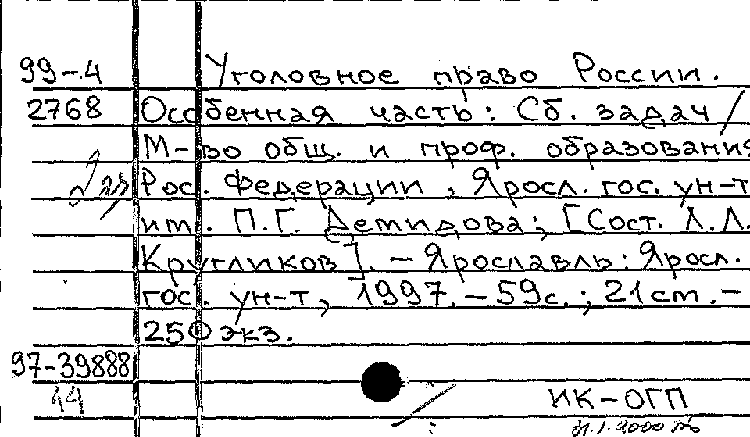 99-4 Уголовное право России.
2768 Особенная часть: Сб. задач /
М-во общ. и проф. образования
Рос. Федерации, Яросл. гос. ун-т
им. П.Г. Демидова; [Сост. Л.Л.
Кругликов]. - Ярославль: Яросл.
гос. ун-т, 1997. - 59 с.; 21 см. -
250 экз.
97-39888
44 ИК-ОГП